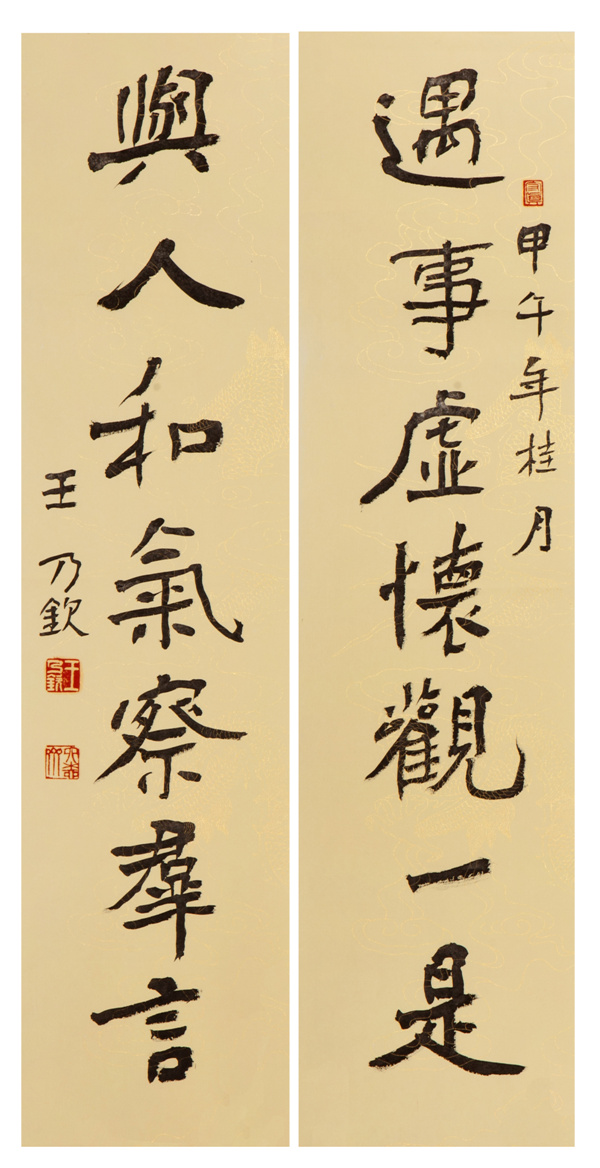 甲午年桂月
遇事虛懷觀一是
與人和氣察羣言
王乃欽